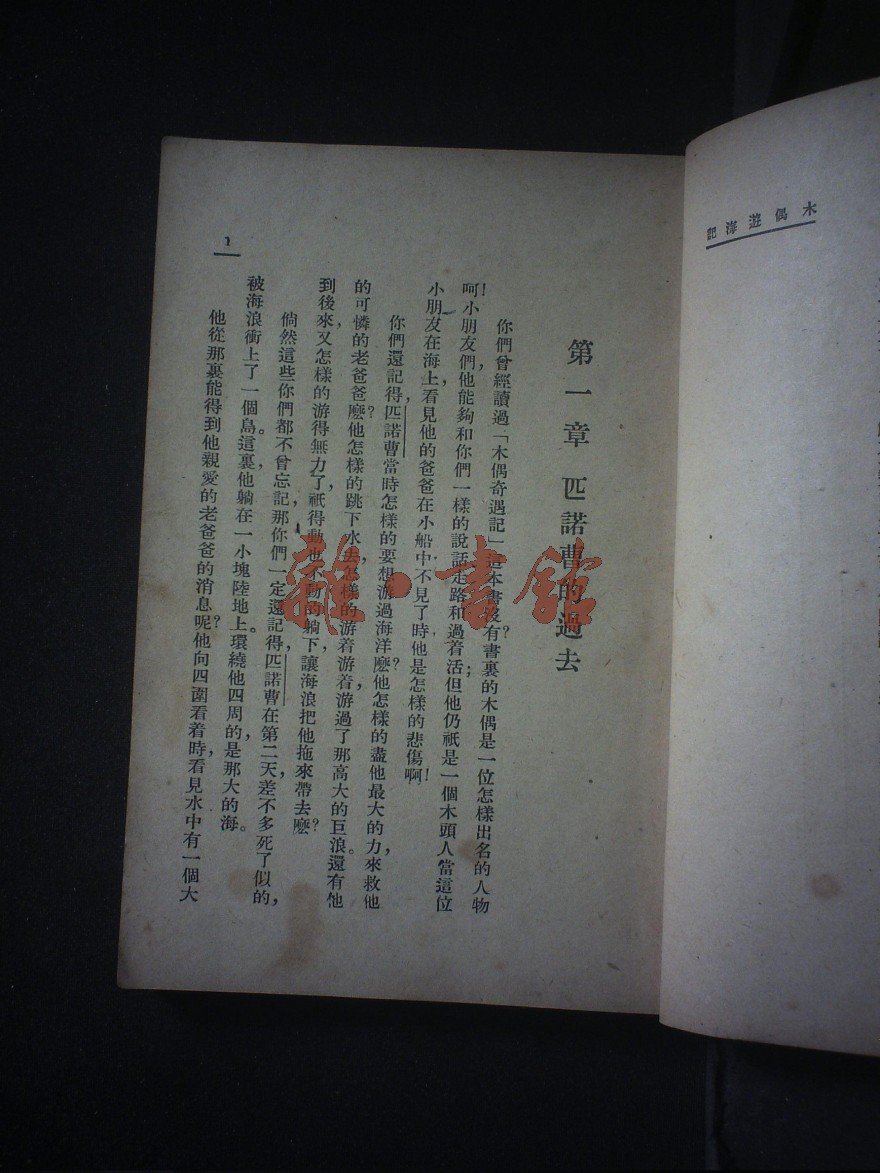 木偶遊海記
第一章 匹諾曹的過去
你們曾經讀過「木偶奇遇記」這本書沒有?書裏的木偶是一位怎樣出名的人物
呵!小朋友們,他能夠和你們一樣的說話走路和過着活;但他仍祇是一個木頭人當這位
小朋友在海上看見他的爸爸在小船中不見了時,他是怎樣的悲傷啊!
你們還記得,匹諾曹當時怎樣的要想游過海洋麽?他怎樣的盡他最大的力,來救他
的可憐的老爸爸麽?他怎樣的跳下水去,怎樣的游着游着游過了那高大的巨浪。還有他
到後來,又怎樣的游得無力了,祇得動也不動的躺下,讓海浪把他拖來帶去麽?
倘然這些你們都不曾忘記,那你們一定還記得,匹諾曹在第二天差不多死了似的,
被海浪衝上了一個島。這裏,他躺在一小塊陸地上。環繞他四周的,是那大的海。
他從那裏能得到他親愛的老爸爸的消息呢?他向四圍看着時,看見水中有一個大
1
龍·書館